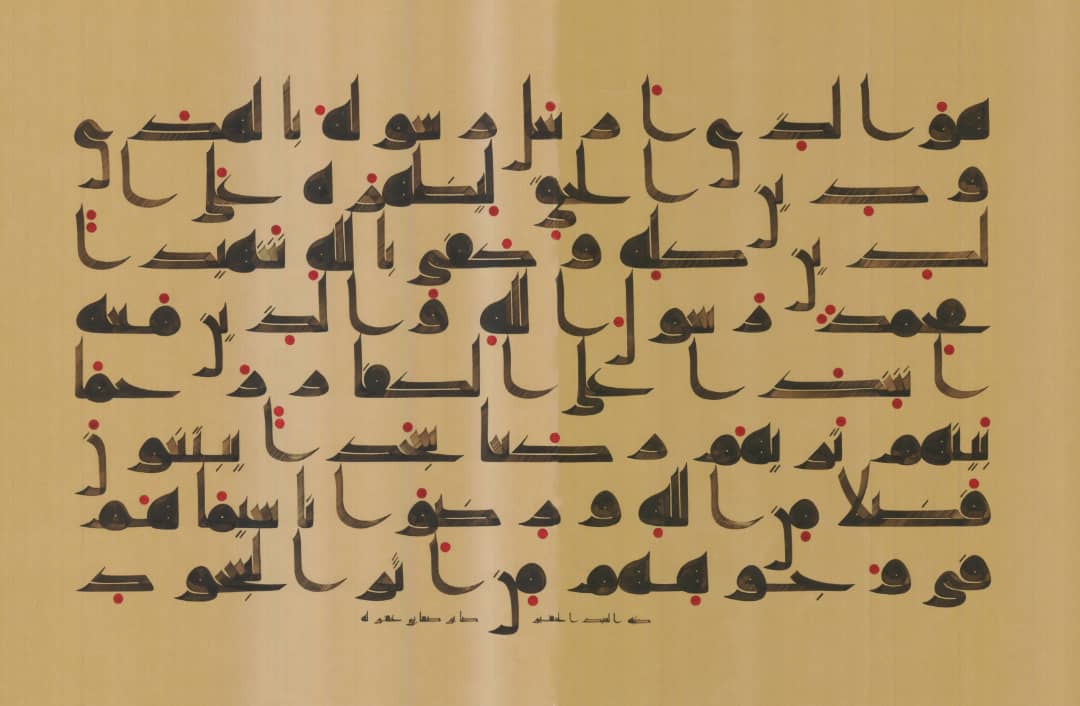 هو الذي ارسل رسوله بالهدى
ودين الحق ليظهره على ا
لدين كله وكفى بالله شهيدا
محمد رسول الله والذين معه
اشدا على الكفار رحما
بينهم تريهم ركعا سجدا يبتغون
فضلا من الله ورضونا سيماهم
في وجوههم من اثر السجود
كتبه العبد